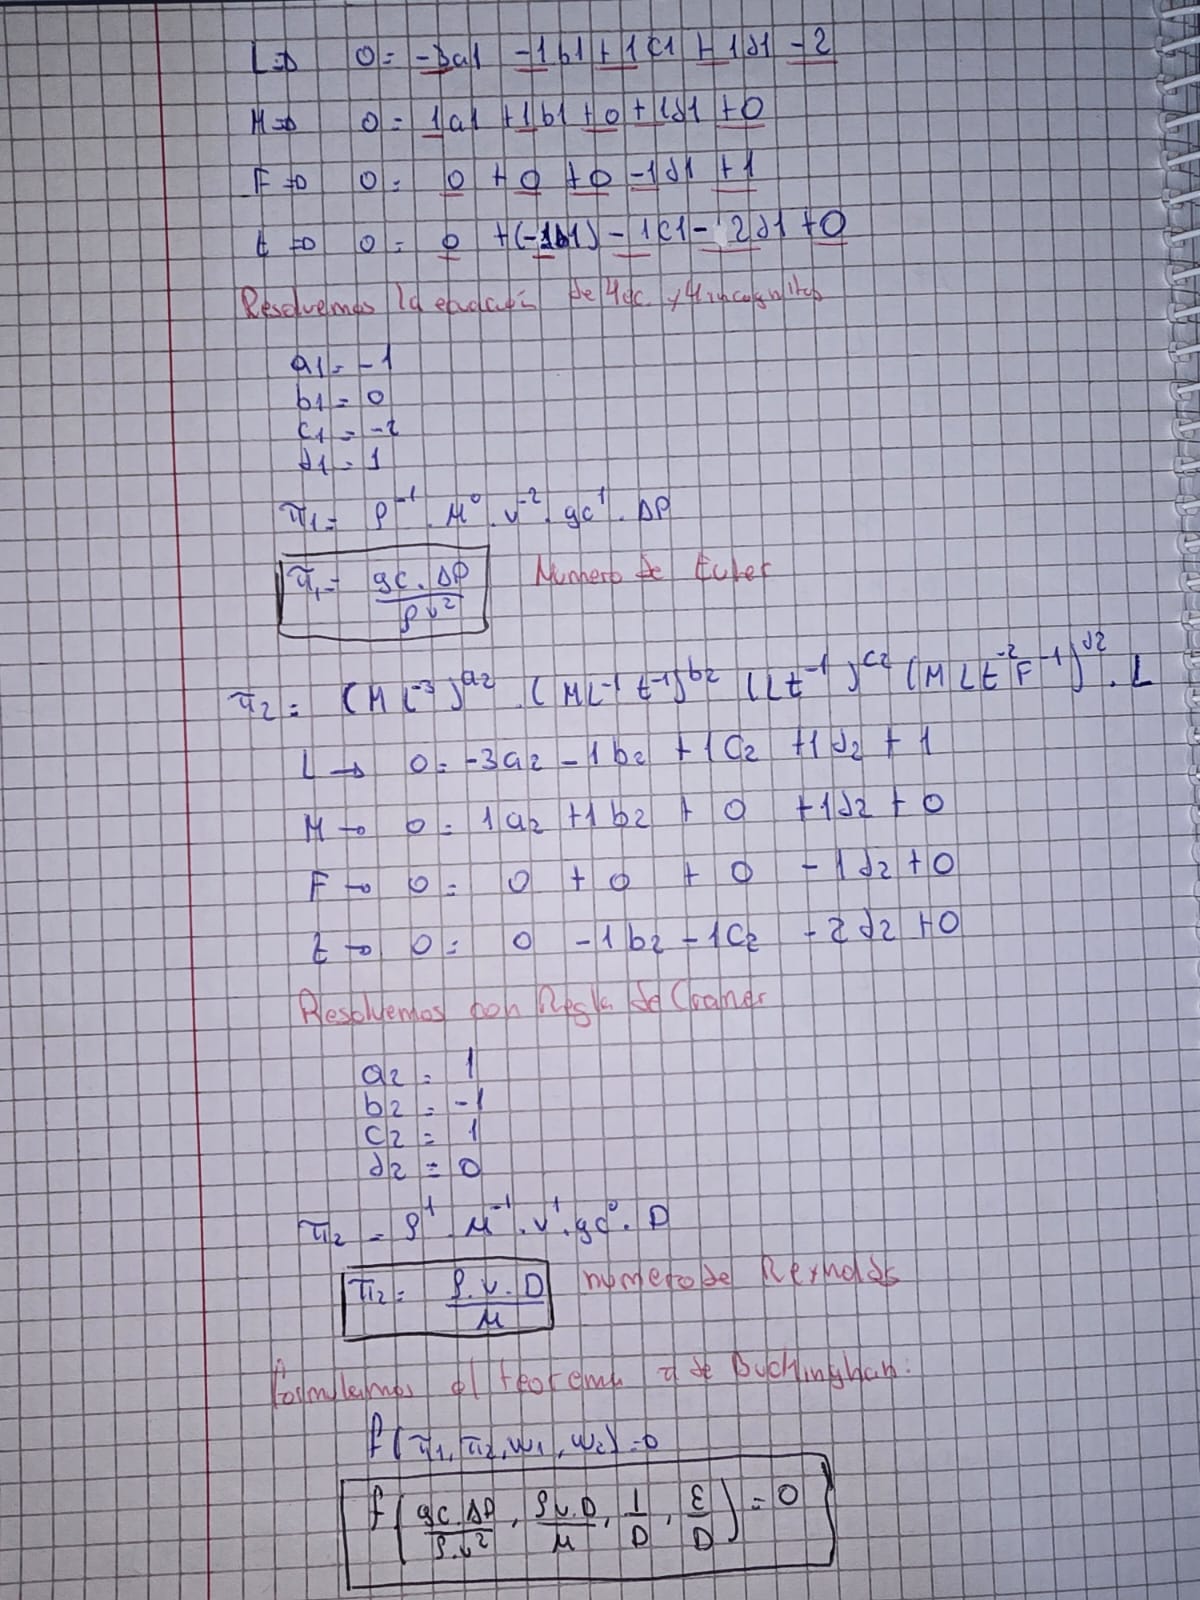 L⇒ 0 = -3a1 -1b1 + 1c1 + 1d1 - 2
M⇒ 0 = 1a1 + 1b1 + 0 + 1d1 + 0
F⇒ 0 = 0 + 0 + 0 - 1d1 + 1
t⇒ 0 = 0 + (-1b1) - 1c1 - 2d1 + 0
Resolvemos la ecuación de 4 ec. y 4 incognitas
a1 = -1
b1 = 0
c1 = -2
d1 = 1
π1 = ρ⁻¹ . μ⁰ . v⁻² . gc¹ . ΔP
π1 = gc . ΔP / ρ v² Numero de Euler
π2 = (M L⁻³)^a2 . (M L⁻¹ t⁻¹)^b2 (L t⁻¹)^c2 (M L t⁻² F⁻¹)^d2 . L
L → 0 = -3a2 - 1b2 + 1c2 + 1d2 + 1
M → 0 = 1a2 + 1b2 + 0 + 1d2 + 0
F → 0 = 0 + 0 + 0 - 1d2 + 0
t → 0 = 0 - 1b2 - 1c2 - 2d2 + 0
Resolvemos con Regla de Cramer
a2 = 1
b2 = -1
c2 = 1
d2 = 0
π2 = ρ¹ . μ⁻¹ . v¹ . gc⁰ . D
π2 = ρ . v . D / μ número de Reynolds
Formulamos el teorema π de Buchinghan:
f(π1, π2, w1, w2) = 0
f(gc . ΔP / ρ . v² , ρ v . D / μ , l / D , ε / D) = 0